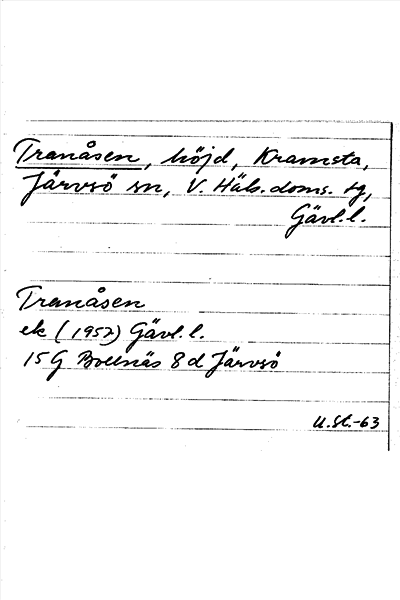 Tranåsen, höjd, Kramsta,
Järvsö sn, V. Häls. doms. tg,
Gävl. l.
Tranåsen
ek (1957) Gävl. l.
15 G Bollnäs 8 d Järvsö
U.St.-63